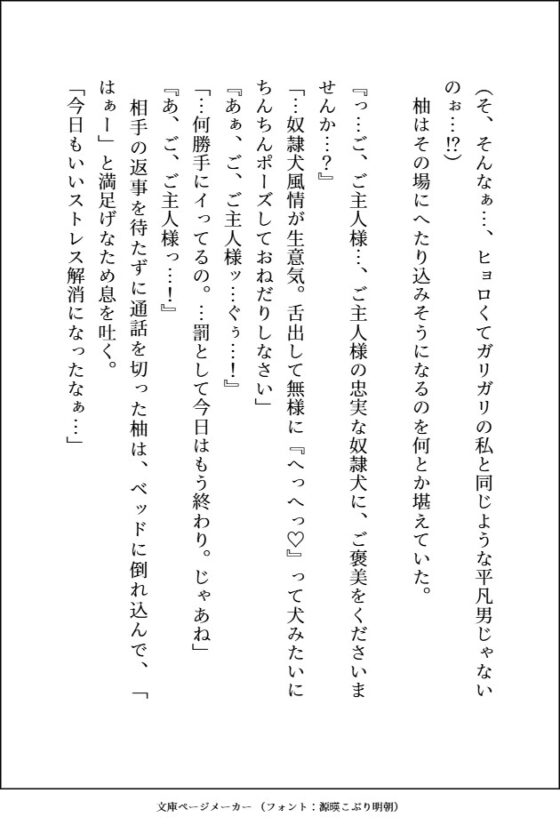 (そ、そんなぁ…、ヒョロくてガリガリの私と同じような平凡男じゃない
のぉ…⁉)
　柚はその場にへたり込みそうになるのを何とか堪えていた。
『っ…ご、ご主人様…、ご主人様の忠実な奴隷犬に、ご褒美をくださいま
せんか…？』
「…奴隷犬風情が生意気。舌出して無様に『へっへっ♡』って犬みたいに
ちんちんポーズしておねだりしなさい」
『あぁ、ご、ご主人様ッ…ぐぅ…！』
「…何勝手にイってるの。…罰として今日はもう終わり。じゃあね」
『あ、ご、ご主人様っ…！』
　相手の返事を待たずに通話を切った柚は、ベッドに倒れ込んで、「
はぁー」と満足げなため息を吐く。
「今日もいいストレス解消になったなぁ…」
文庫ページメーカー（フォント：源暎こぶり明朝）